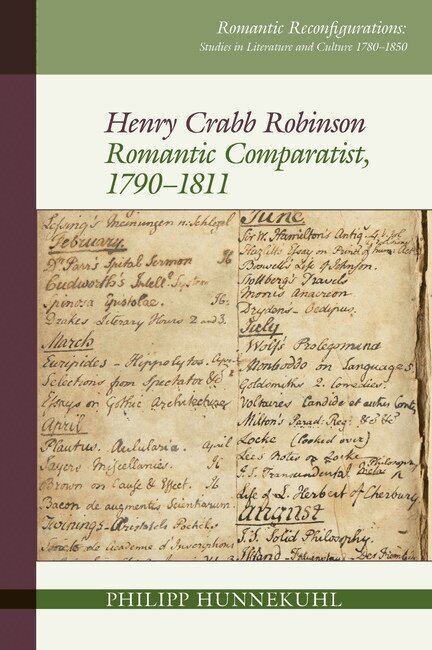 Romantic Reconfigurations:
Studies in Literature and Culture 1780–1850
Henry Crabb Robinson
Romantic Comparatist,
1790–1811
Lessing's Meinungen n. Schlegel
February.
Dr Parr's Spital Sermon
Cudworth's Intell. System
Spinosa Epistolae.
Drakes Literary Hours 2 and 3.
March
Euripides - Hippolytos.
Selections from Spectator &c
Essays on Gothic Architecture
April
Plautus. Aulularia. April
Sayers Miscellanies.
Brown on Cause & Effect.
Bacon de augmentis Scientiarum.
Twinings Aristotles Poeticks
de Academie d'Inscriptions
June.
Sir W. Hamilton's Antiq
Hazlitts Essay on Princ of human Act
Boswell's Life of Johnson.
Stolberg's Travels
Moore's Anacreon
Drydens - Oedipus.
July
Wolf's Prolegomena
Monboddo on Languages
Goldsmiths 2. Comedies.
Voltaires Candide et autres Contes
Milton's Parad: Reg: &c &c
Locke (looked over)
Lees Notes on Locke
Transcendental Philosophy
Life of L. Herbert of Cherbury
August
Solid Philosophy.
Iffland
PHILIPP HUNNEKUHL